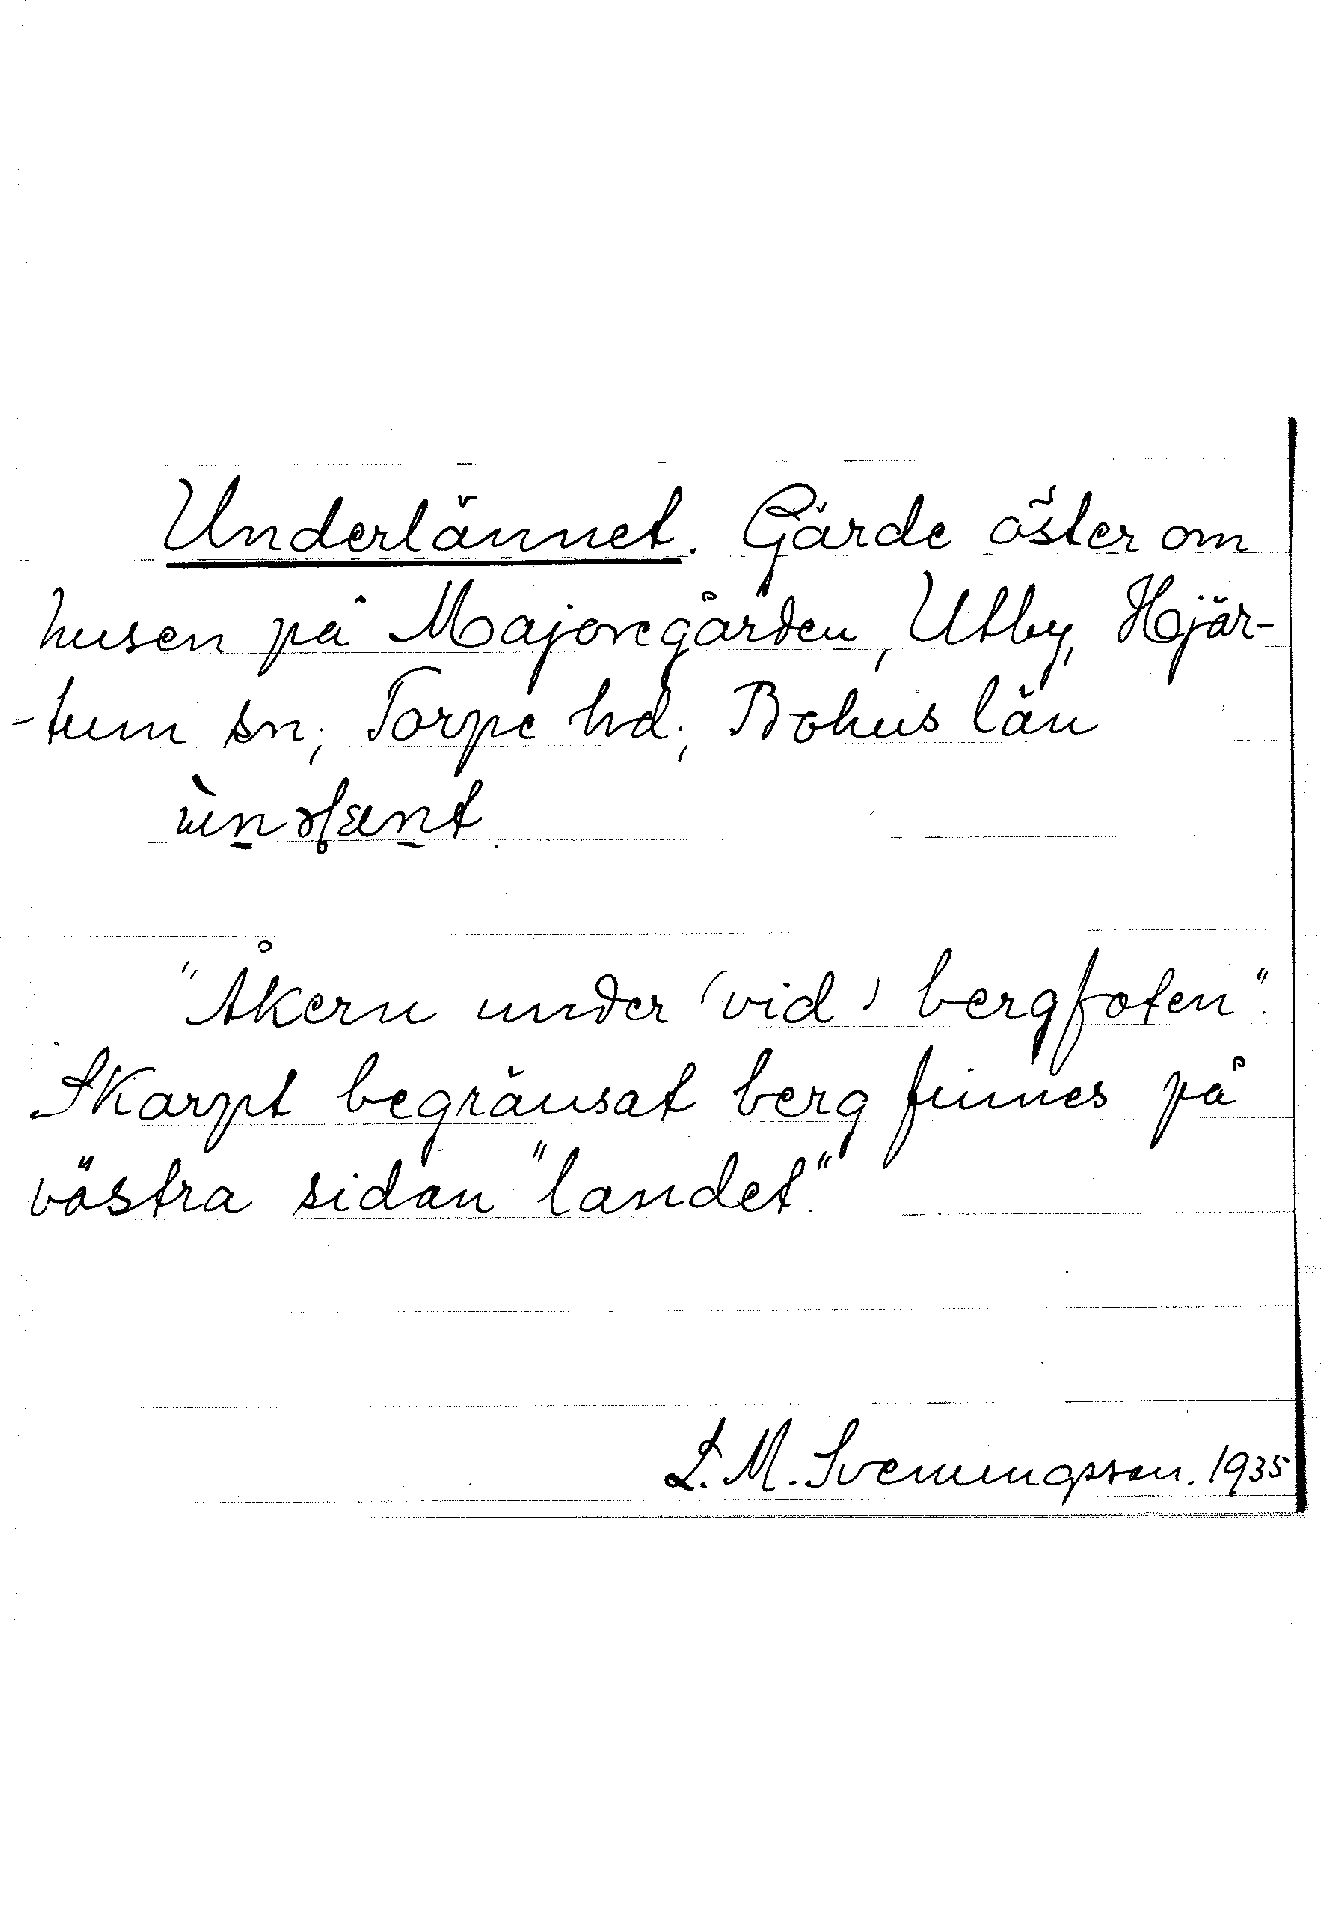 Underlännet. Gärde öster om
husen på Majoregården, Utby, Hjär-
-tum sn; Torpe hd; Bohus län
"Åkern under (vid) bergfoten".
Skarpt begränsat berg finnes på
västra sidan "landet".
L. M. Svenungsson. 1935